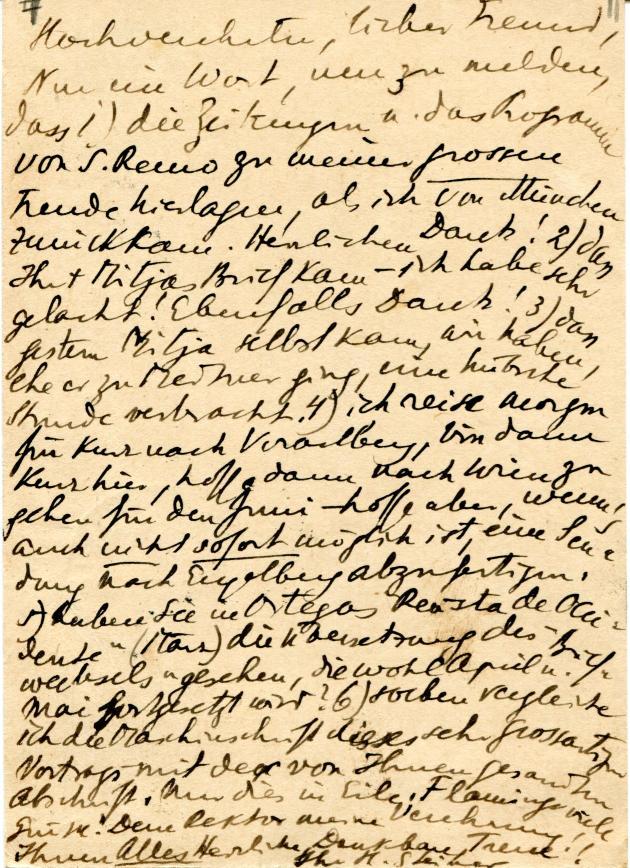 Hochverehrter, lieber Freund,
Nur ein Wort, um zu melden,
dass 1) die Zeitungen u. das Programm
von S. Remo zu meiner grossen
Freude hierlagen, als ich von München
zurückkam. Herzlichen Dank! 2) dass
Ihr + Mitjas Brief kam – ich habe sehr
gelacht! Ebenfalls Dank! 3) dass
gestern Mitja selbst kam, wir haben,
ehe er zu Medtner ging, eine hübsche
Stunde verbracht. 4) ich reise morgen
für kurz nach Vorarlberg, bin dann
kurz hier, hoffe dann nach Wien zu
gehen für den Juni – hoffe aber, wenn's
auch nicht sofort möglich ist, eine Sen-
dung nach Engelberg abzufertigen.
5) haben Sie in Ortegas Revista de Occi-
dente" (März) die Übersetzung des "Brief-
wechsels" gesehen, die wohl April u.
Mai fortgesetzt wird? 6) soeben vergleiche
ich die Maschinschrift dieses sehr grossartigen
Vortrags mit der von Ihnen gesandten
Abschrift. Nur dies in Eile,
Dem Rektor meine Verehrung!!
Ihnen Alles Herzliche, Dankbare, Treue!
Ihr H. Steiner